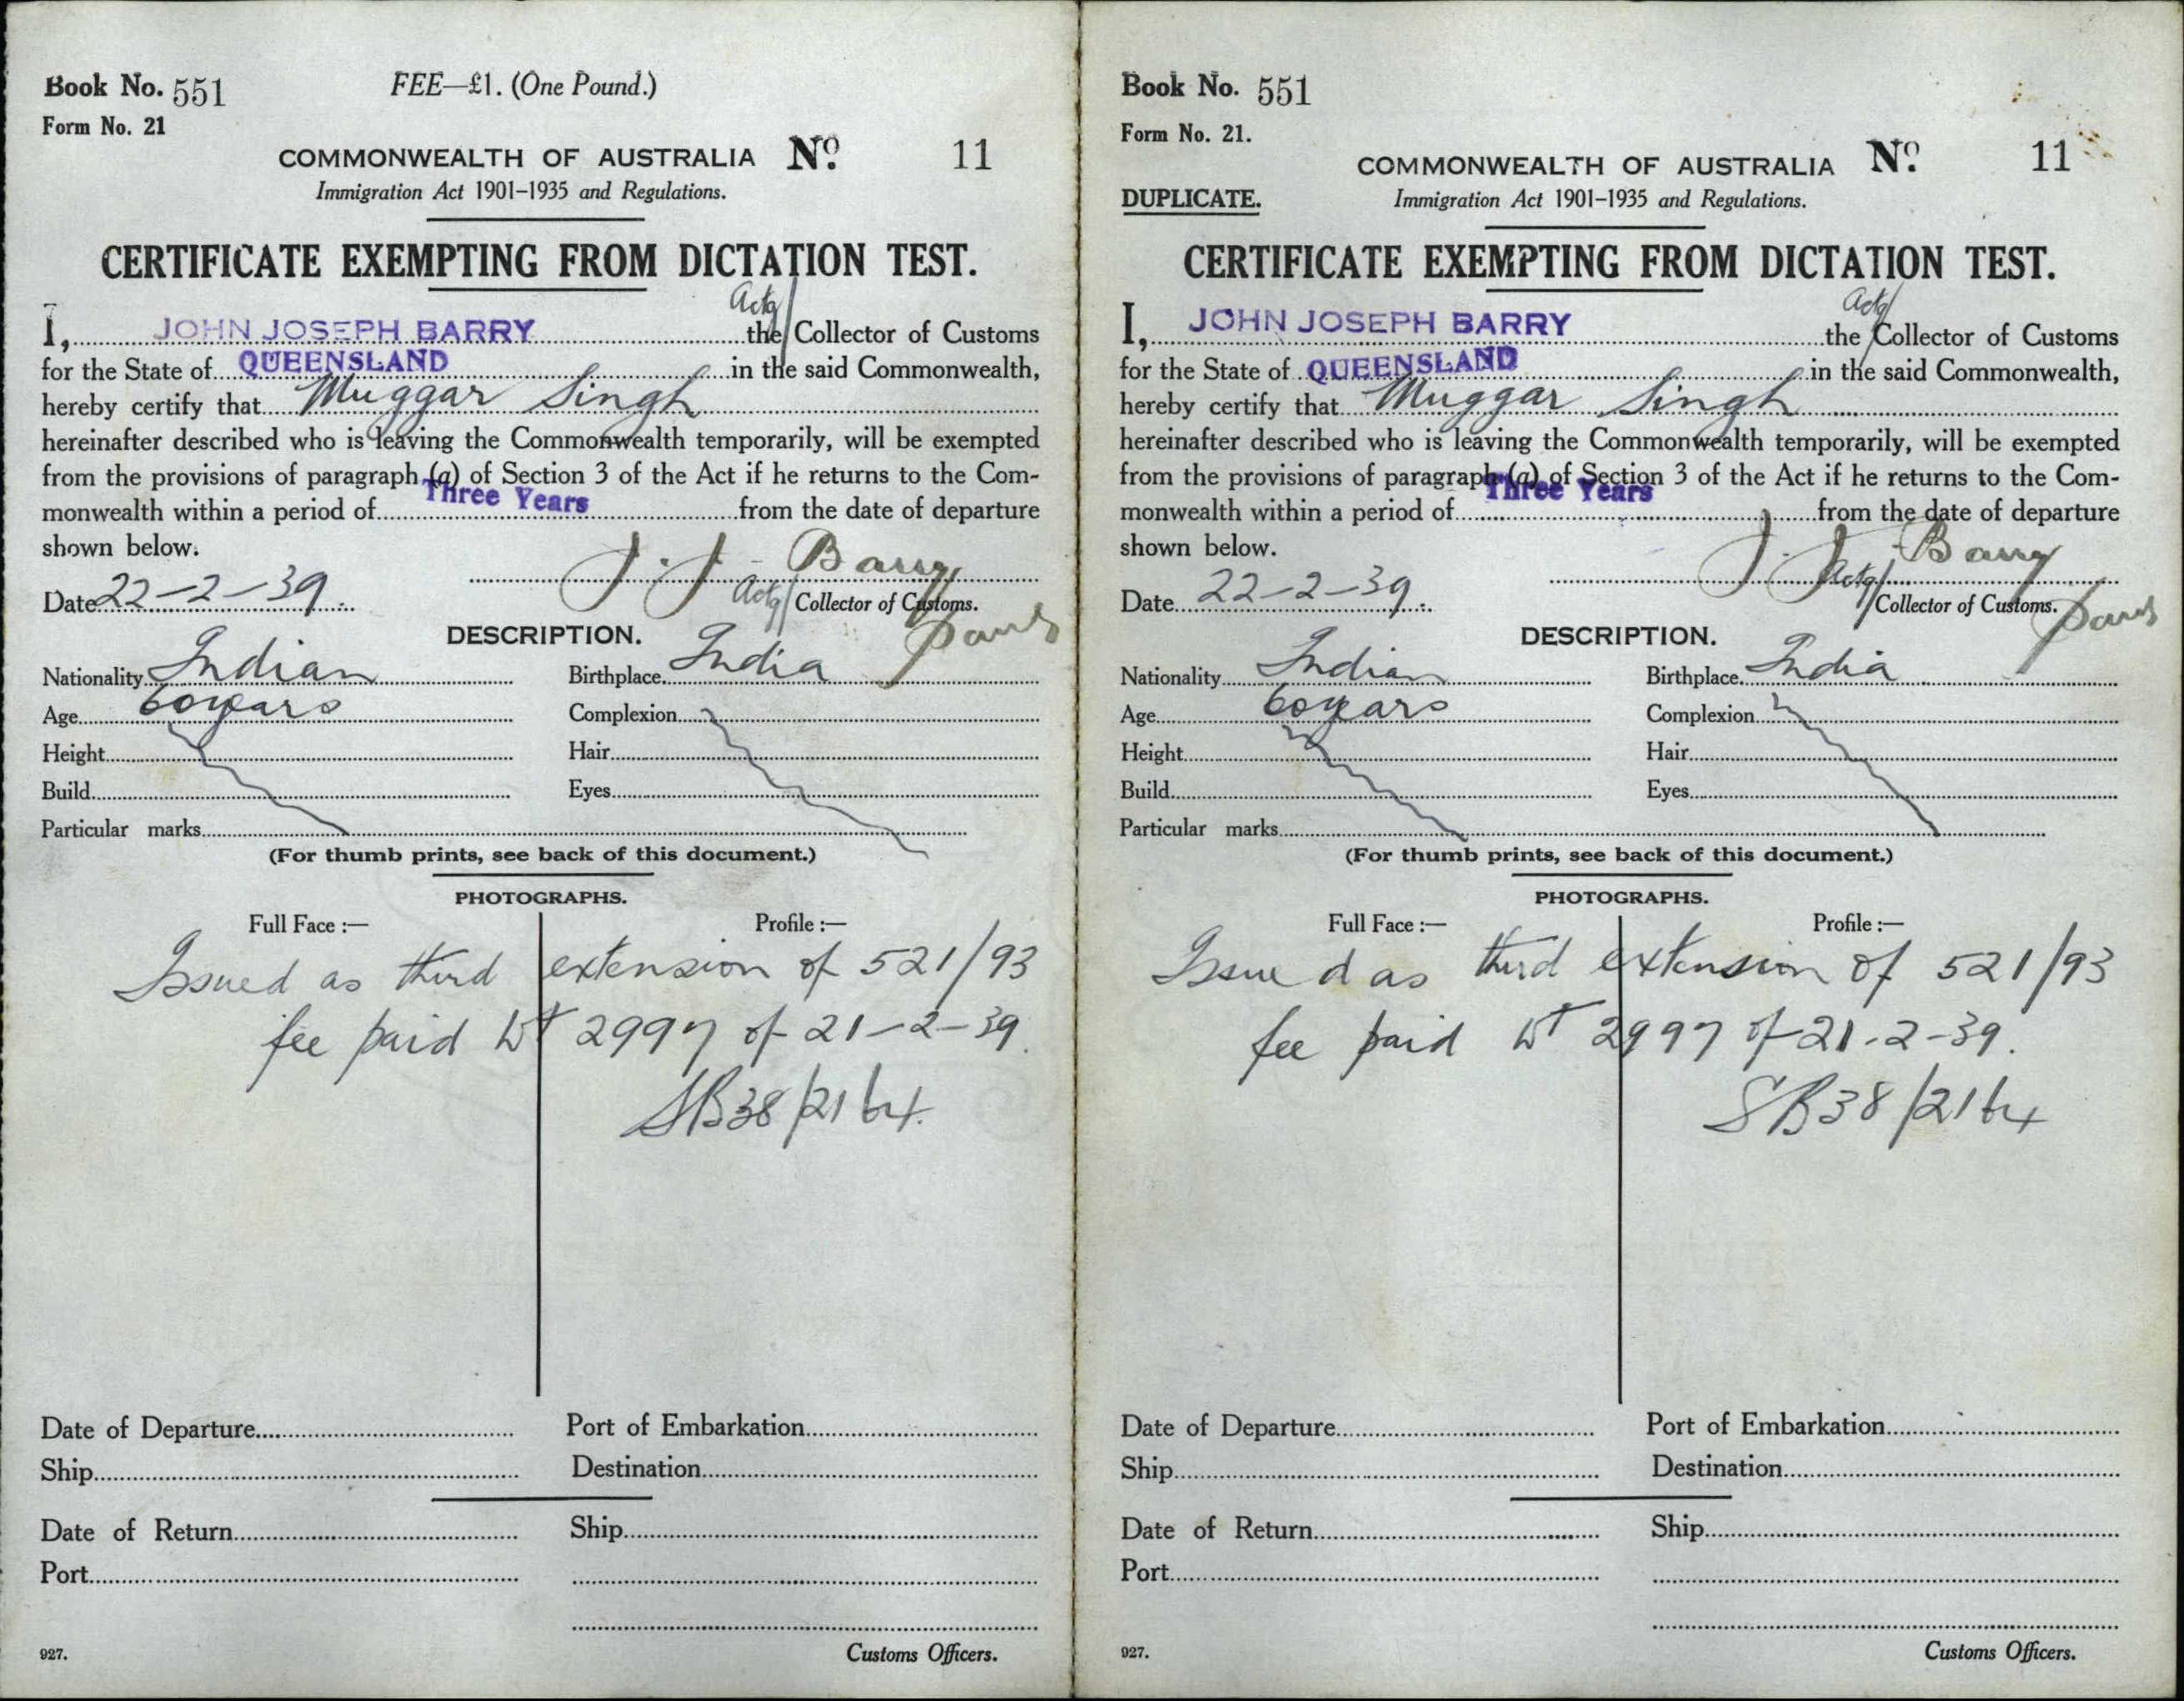 Book No. 551
FEE—£1. (One Pound.)
Form No. 21
COMMONWEALTH OF AUSTRALIA No. 11
Immigration Act 1901–1935 and Regulations.
CERTIFICATE EXEMPTING FROM DICTATION TEST.
Actg/
I, JOHN JOSEPH BARRY the Collector of Customs
for the State of QUEENSLAND in the said Commonwealth,
hereby certify that Muggar Singh
hereinafter described who is leaving the Commonwealth temporarily, will be exempted
from the provisions of paragraph (a) of Section 3 of the Act if he returns to the Com-
monwealth within a period of Three Years from the date of departure
shown below.
J. J. Barry
Date 22-2-39
Actg/ Collector of Customs.
DESCRIPTION.
Nationality Indian Birthplace India
Age 60 years Complexion
Height Hair
Build Eyes
Particular marks
(For thumb prints, see back of this document.)
PHOTOGRAPHS.
Full Face :— Profile :—
Issued as third extension of 521/93
fee paid 2997 of 21-2-39.
SB38/2164.
Date of Departure Port of Embarkation
Ship Destination
Date of Return Ship
Port
927. Customs Officers.
Book No. 551
Form No. 21.
COMMONWEALTH OF AUSTRALIA No. 11
DUPLICATE. Immigration Act 1901–1935 and Regulations.
CERTIFICATE EXEMPTING FROM DICTATION TEST.
Actg/
I, JOHN JOSEPH BARRY the Collector of Customs
for the State of QUEENSLAND in the said Commonwealth,
hereby certify that Muggar Singh
hereinafter described who is leaving the Commonwealth temporarily, will be exempted
from the provisions of paragraph (a) of Section 3 of the Act if he returns to the Com-
monwealth within a period of Three Years from the date of departure
shown below.
J. J. Barry
Date 22-2-39
Actg/ Collector of Customs.
DESCRIPTION.
Nationality Indian Birthplace India
Age 60 years Complexion
Height Hair
Build Eyes
Particular marks
(For thumb prints, see back of this document.)
PHOTOGRAPHS.
Full Face :— Profile :—
Issued as third extension of 521/93
fee paid 2997 of 21-2-39.
SB38/2164
Date of Departure Port of Embarkation
Ship Destination
Date of Return Ship
Port
927. Customs Officers.